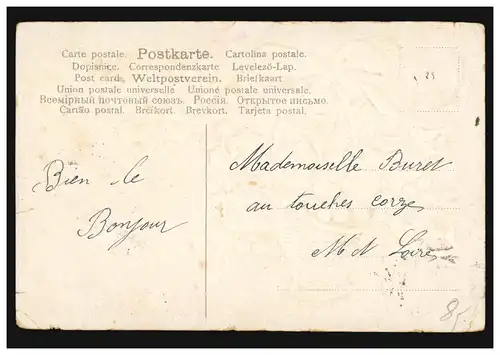 Carte postale. Postkarte. Cartolina postale.
Dopisnice. Correspondenzkarte Levelezö-Lap.
Post card. Weltpostverein. Briefkaart
Union postale universelle Unione postale universale.
Всемірный почтовый союзъ. Россія. Открытое письмо.
Cartão postal. Brefkort. Brevkort. Tarjeta postal.
25
Bien le
Bonjour
Mademoiselle Buret
au touches
M et Loire
8,-